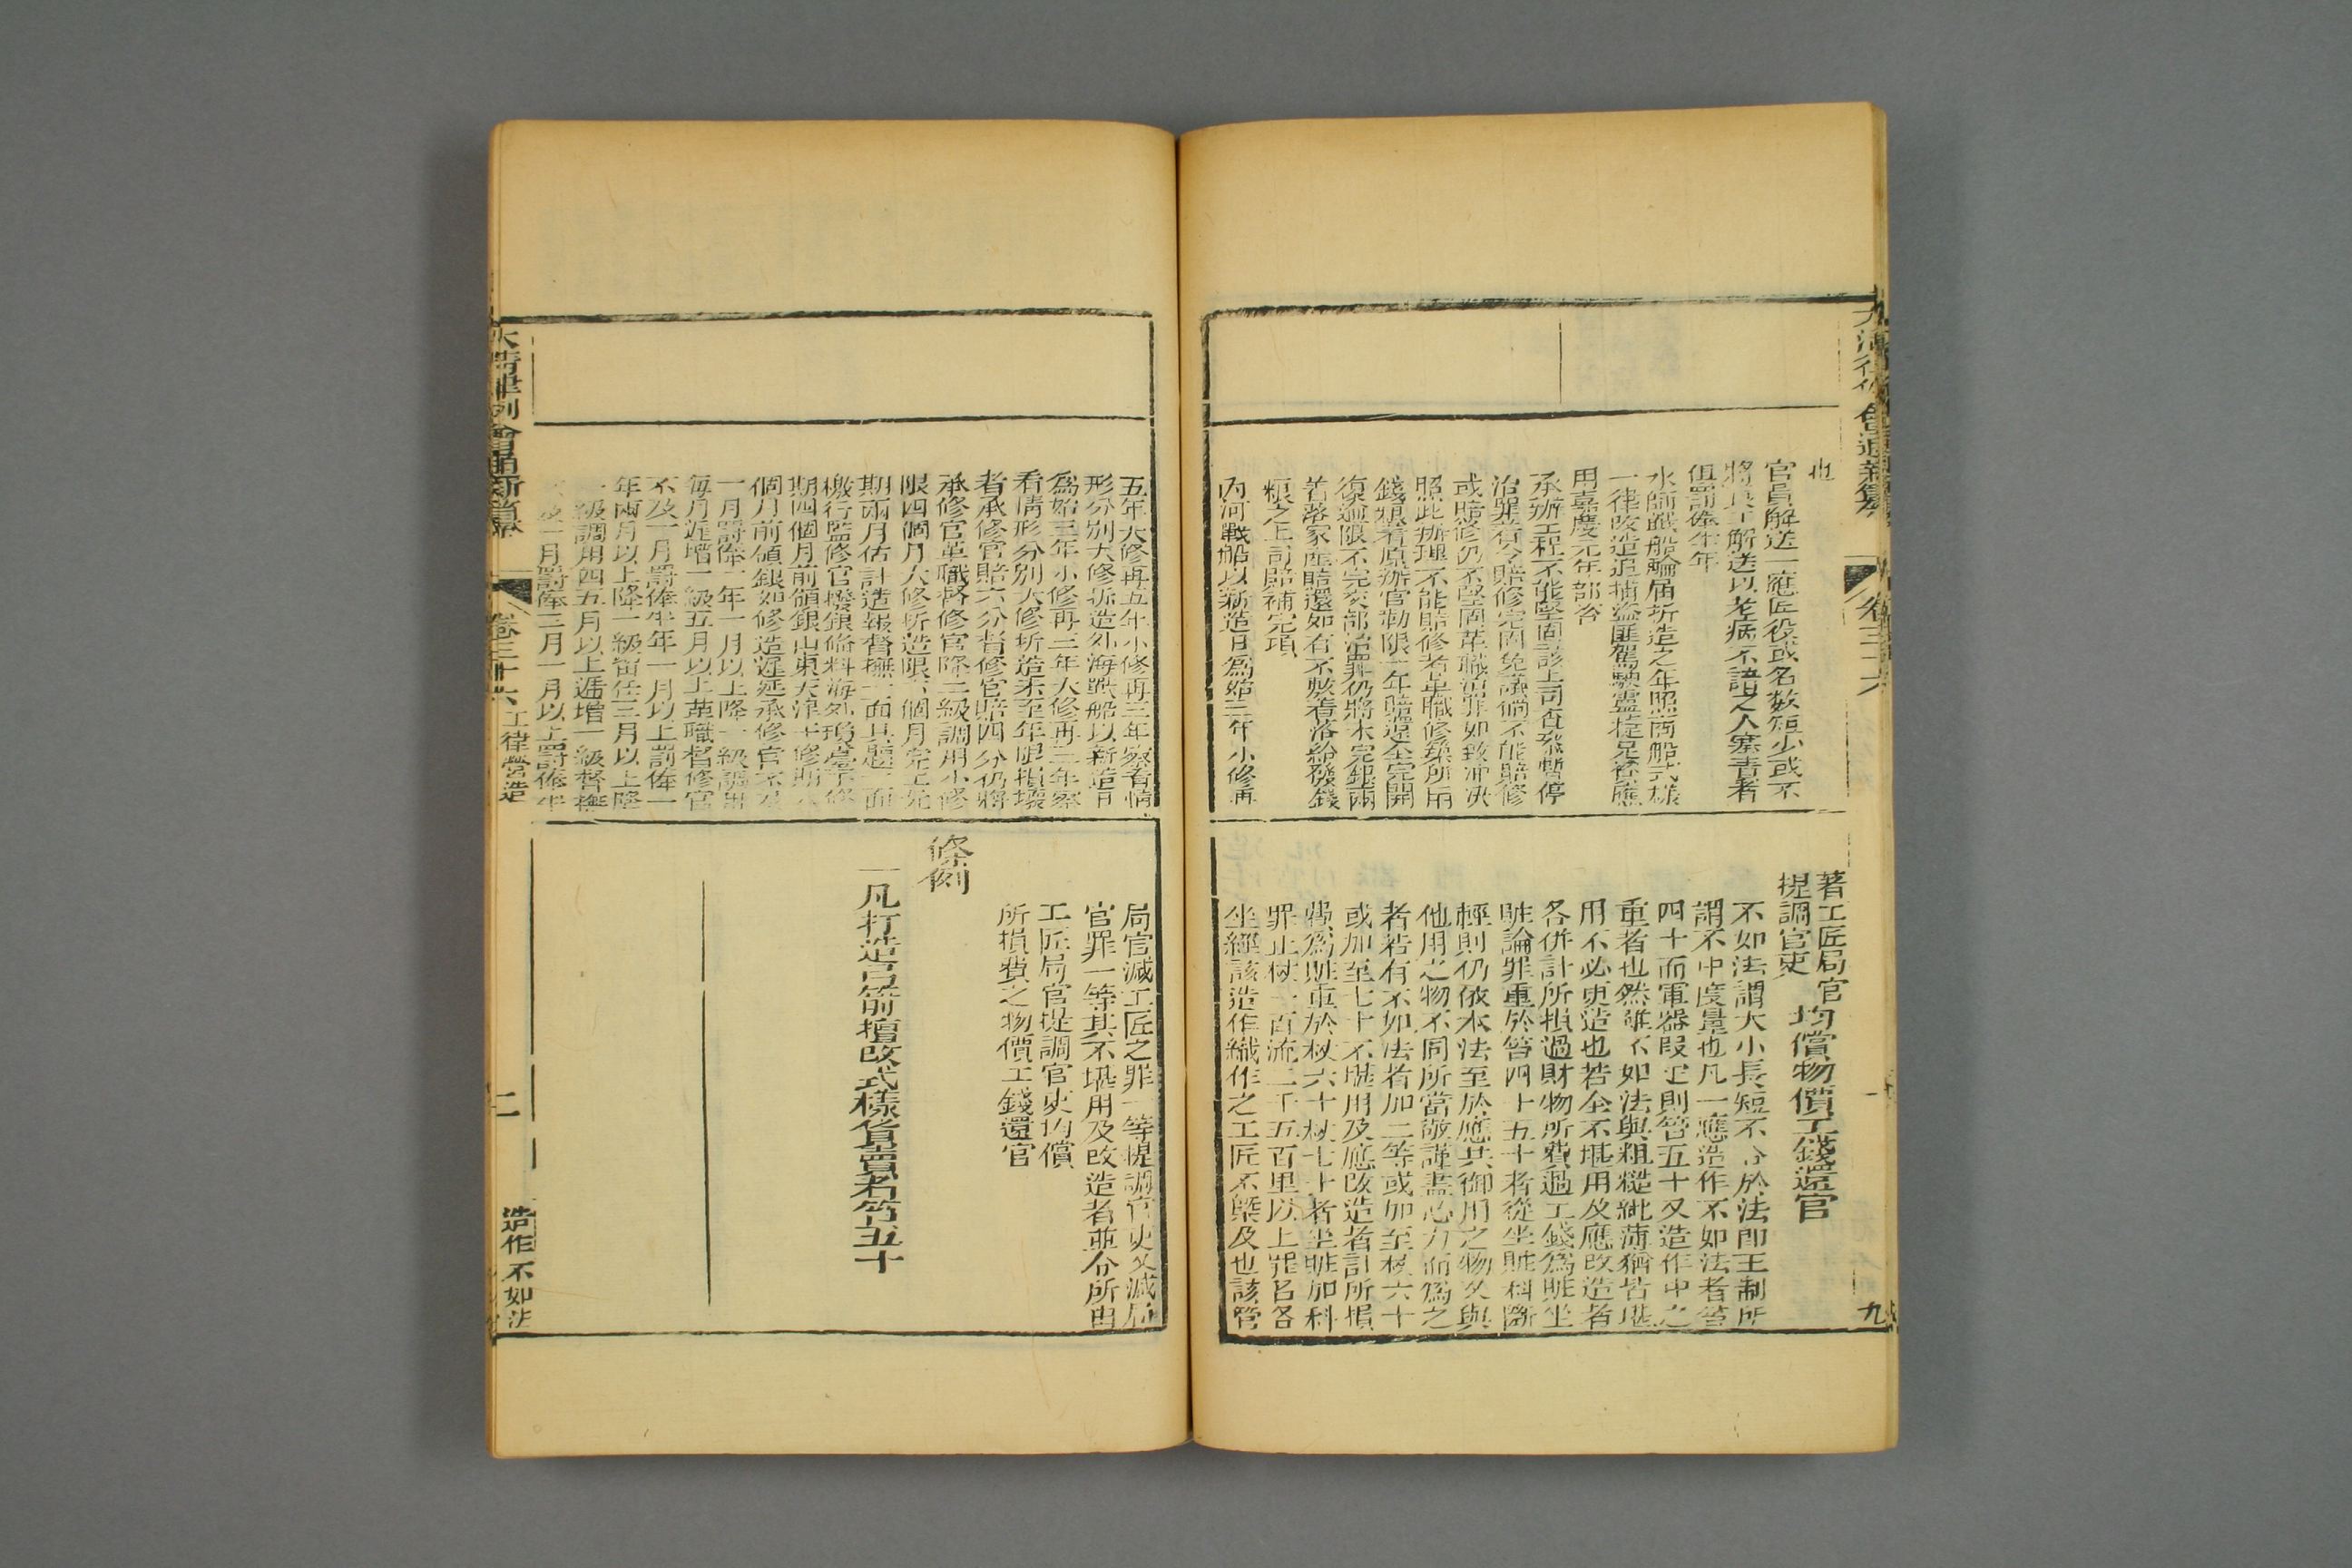 也
官員解送一應匠役或名數短少或不
將良工解送以老病不諳之人塞責者
俱罰俸半年
水師戰船輪届拆造之年照商船式樣
一律改造追捕盜匪駕駛靈捷足資應
用嘉慶元年部咨
承辦工程不能堅固該上司查參暫停
治罪若令賠修完固免議倘不能賠修
或賠修仍不堅固革職治罪如致冲决
照此辦理不能賠修者革職修築所用
錢糧著原辦官勒限一年賠還全完開
復逾限不完交部治罪仍將未完銀兩
著落家産賠還如有不敷着落給發錢
糧之上司賠補完項
內河戰船以新造日為始三年小修再
著工匠局官
提調官吏 均償物價工錢還官
不如法謂大小長短不合於法即王制所
謂不中度量也凡一應造作不如法者笞
四十而軍器段疋則笞五十又造作中之
重者也然雖不如法與粗糙紕薄猶皆堪
用不必更造也若全不堪用及應改造者
各併計所損過財物所費過工錢爲贓坐
贓論罪重於笞四十五十者從坐贓科斷
輕則仍依本法至於應共御用之物又與
他用之物不同所當敬謹盡心力而爲之
者若有不如法者加二等或加至杖六十
或加至七十不堪用及應改造者計所損
費爲贓重於杖六十杖七十者坐贓加科
罪止杖一百流二千五百里以上罪名各
坐經該造作織作之工匠不槩及也該管
大清律例會通新纂
卷三十六
九
五年大修再五年小修再三年察看情
形分别大修拆造外海戰船以新造日
為始三年小修再三年大修再三年察
看情形分别大修拆造未至年限損壞
者承修官賠六分督修官賠四分仍將
承修官革職督修官降二級調用小修
限四個月大修拆造限六個月完工先
期兩月估計造報督撫一面具題一面
檄行監修官撥銀備料海外瓊臺等修
期四個月前領銀山東天津
個月前領銀如修造遲延承修官不及
一月罰俸一年一月以上降一級調用
每月遞增一級五月以上革職督修官
不及一月罰俸半年一月以上罰俸一
年兩月以上降一級留任三月以上降
一級調用四五月以上遞增一級督撫
不及一月罰俸三月一月以上罰俸半
局官減工匠之罪一等提調官吏又減局
官罪一等其不堪用及改造者並分所由
工匠局官提調官吏均償
所損費之物價工錢還官
條例
一凡打造弓箭擅改式樣貨賣者笞五十
大清律例會通新纂
卷三十六
工律營造
二
造作不如法